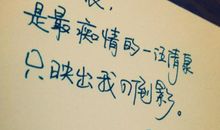 是最痴情的一泓清泉
只映出我的倒影。